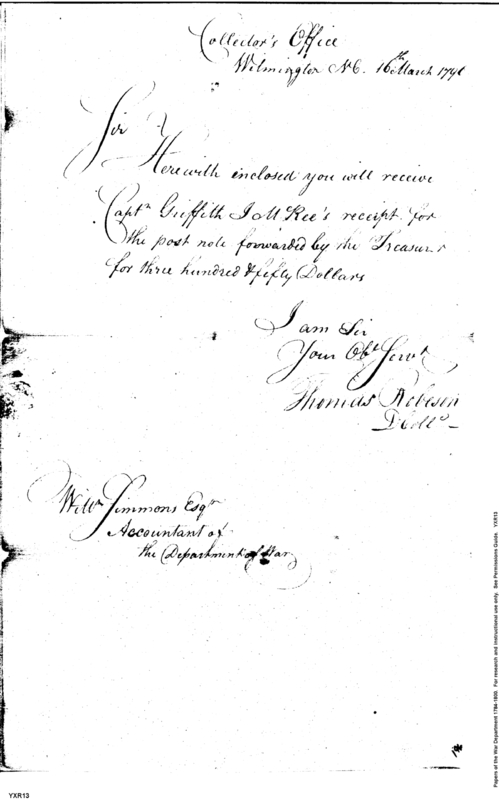 Collector's Office
Wilmington NC. 16th March 179
Sir
Herewith enclosed you will receive
Captn Griffith J McRee's receipt for
the post note forwarded by the Treasurer
for three hundred & fifty Dollars
I am Sir
Your Obt Servt
Thomas Robeson
D Collr
Willm Simmons Esqr
Accountant of
the Department of War
Papers of the War Department 1784-1800. For research and instructional use only. See Permissions Guide. YXR13
YXR13